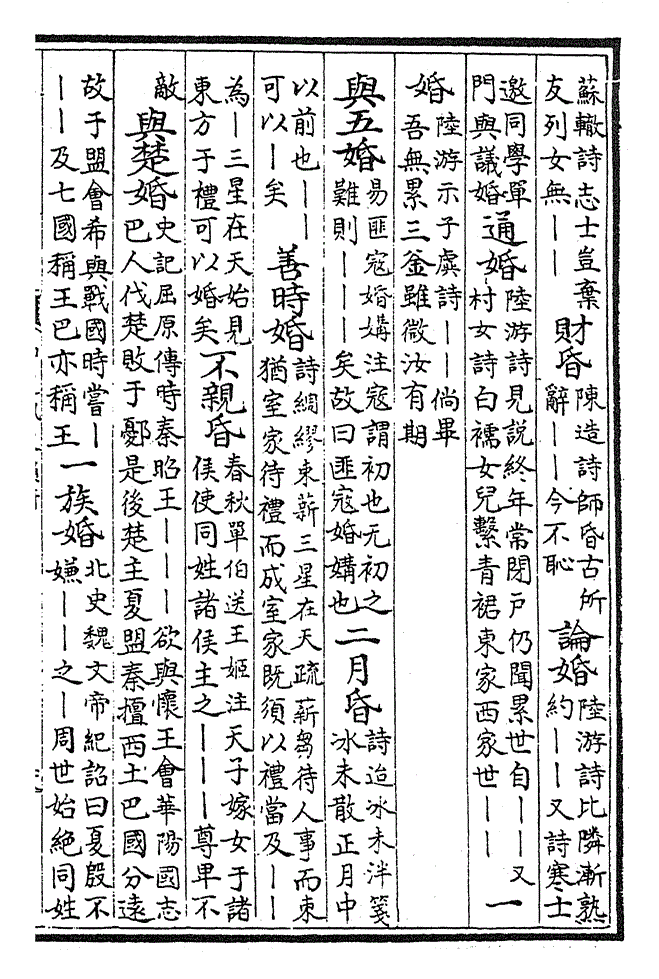 蘇轍詩志士豈棄
友列女無——
財昏
陳造詩師昏古所
辭——今不恥
論婚
陸游詩比隣漸熟
約——又詩寒士
邀同學單
門與議婚
通婚
陸游詩見説終年常閉戸仍聞累世自——又
—村女詩白襦女兒繫青裙東家西家世——
一
婚
陸游示子虡詩——倘畢
吾無累三釡雖微汝有期
與五婚
易匪寇婚媾注寇謂初也无初之
難則———矣故曰匪寇婚媾也
二月昏
詩迨冰未泮箋
冰未散正月中
以前也——
可以—矣
善時婚
詩綢繆束薪三星在天疏薪芻待人事而束
猶室家待禮而成室家既須以禮當及——
為—三星在天始見
東方于禮可以婚矣
不親昏
春秋單伯送王姬注天子嫁女于諸
侯使同姓諸侯主之———尊卑不
敵
與楚婚
史記屈原傳時秦昭王———欲與懷王會華陽國志
巴人伐楚敗于鄾是後楚主夏盟秦擅西土巴國分遠
故于盟會希與戰國時嘗—
——及七國稱王巴亦稱王
一族婚
北史魏文帝紀詔曰夏殷不
嫌———之—周世始絶同姓